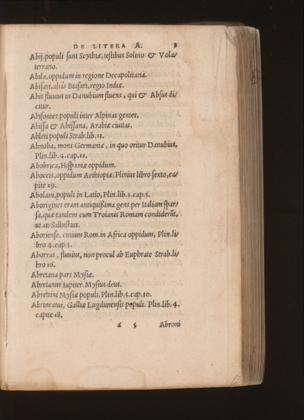 DE LITERA A. 8
Abij, populi sunt Scythiæ, testibus Solino & Vola/
terrano.
Abila, oppidum in regione Decapolitana.
Abisari, aliàs Biisari, regio Indiæ.
Abis fluuius in Danubium fluens, qui & Absus di/
citur.
Abisontes populi inter Alpinas gentes.
Abissa & Abissana, Arabiæ ciuitas.
Ableti populi Strab. lib. 12.
Abnoba, mons Germaniæ, in quo oritur Danubius,
Plin. lib. 4. cap. 12.
Abobrica, Hispaniæ oppidum.
Aboccis, oppidum Aethiopiæ. Plinius libro sexto, ca/
pite 29.
Abolani, populi in Latio, Plin. lib. 3. cap. 5.
Aborigines erant antiquissima gens per Italiam spar/
sa, quæ tandem cum Troianis Romam condiderūt,
ut ait Sallustius.
Aboriense, ciuium Rom. in Africa oppidum, Plin. li/
bro 4. cap. 5.
Aborras, fluuius, non procul ab Euphrate Strab. li/
bro 16.
Abretana pars Mysiæ.
Abretanus Iupiter. Mysius deus.
Abretini Mysiæ populi. Plin. lib. 5. cap. 30.
Abrincatui, Galliæ Lugdunensis populi. Plin. lib. 4.
capite 18.
a 5 Abroni